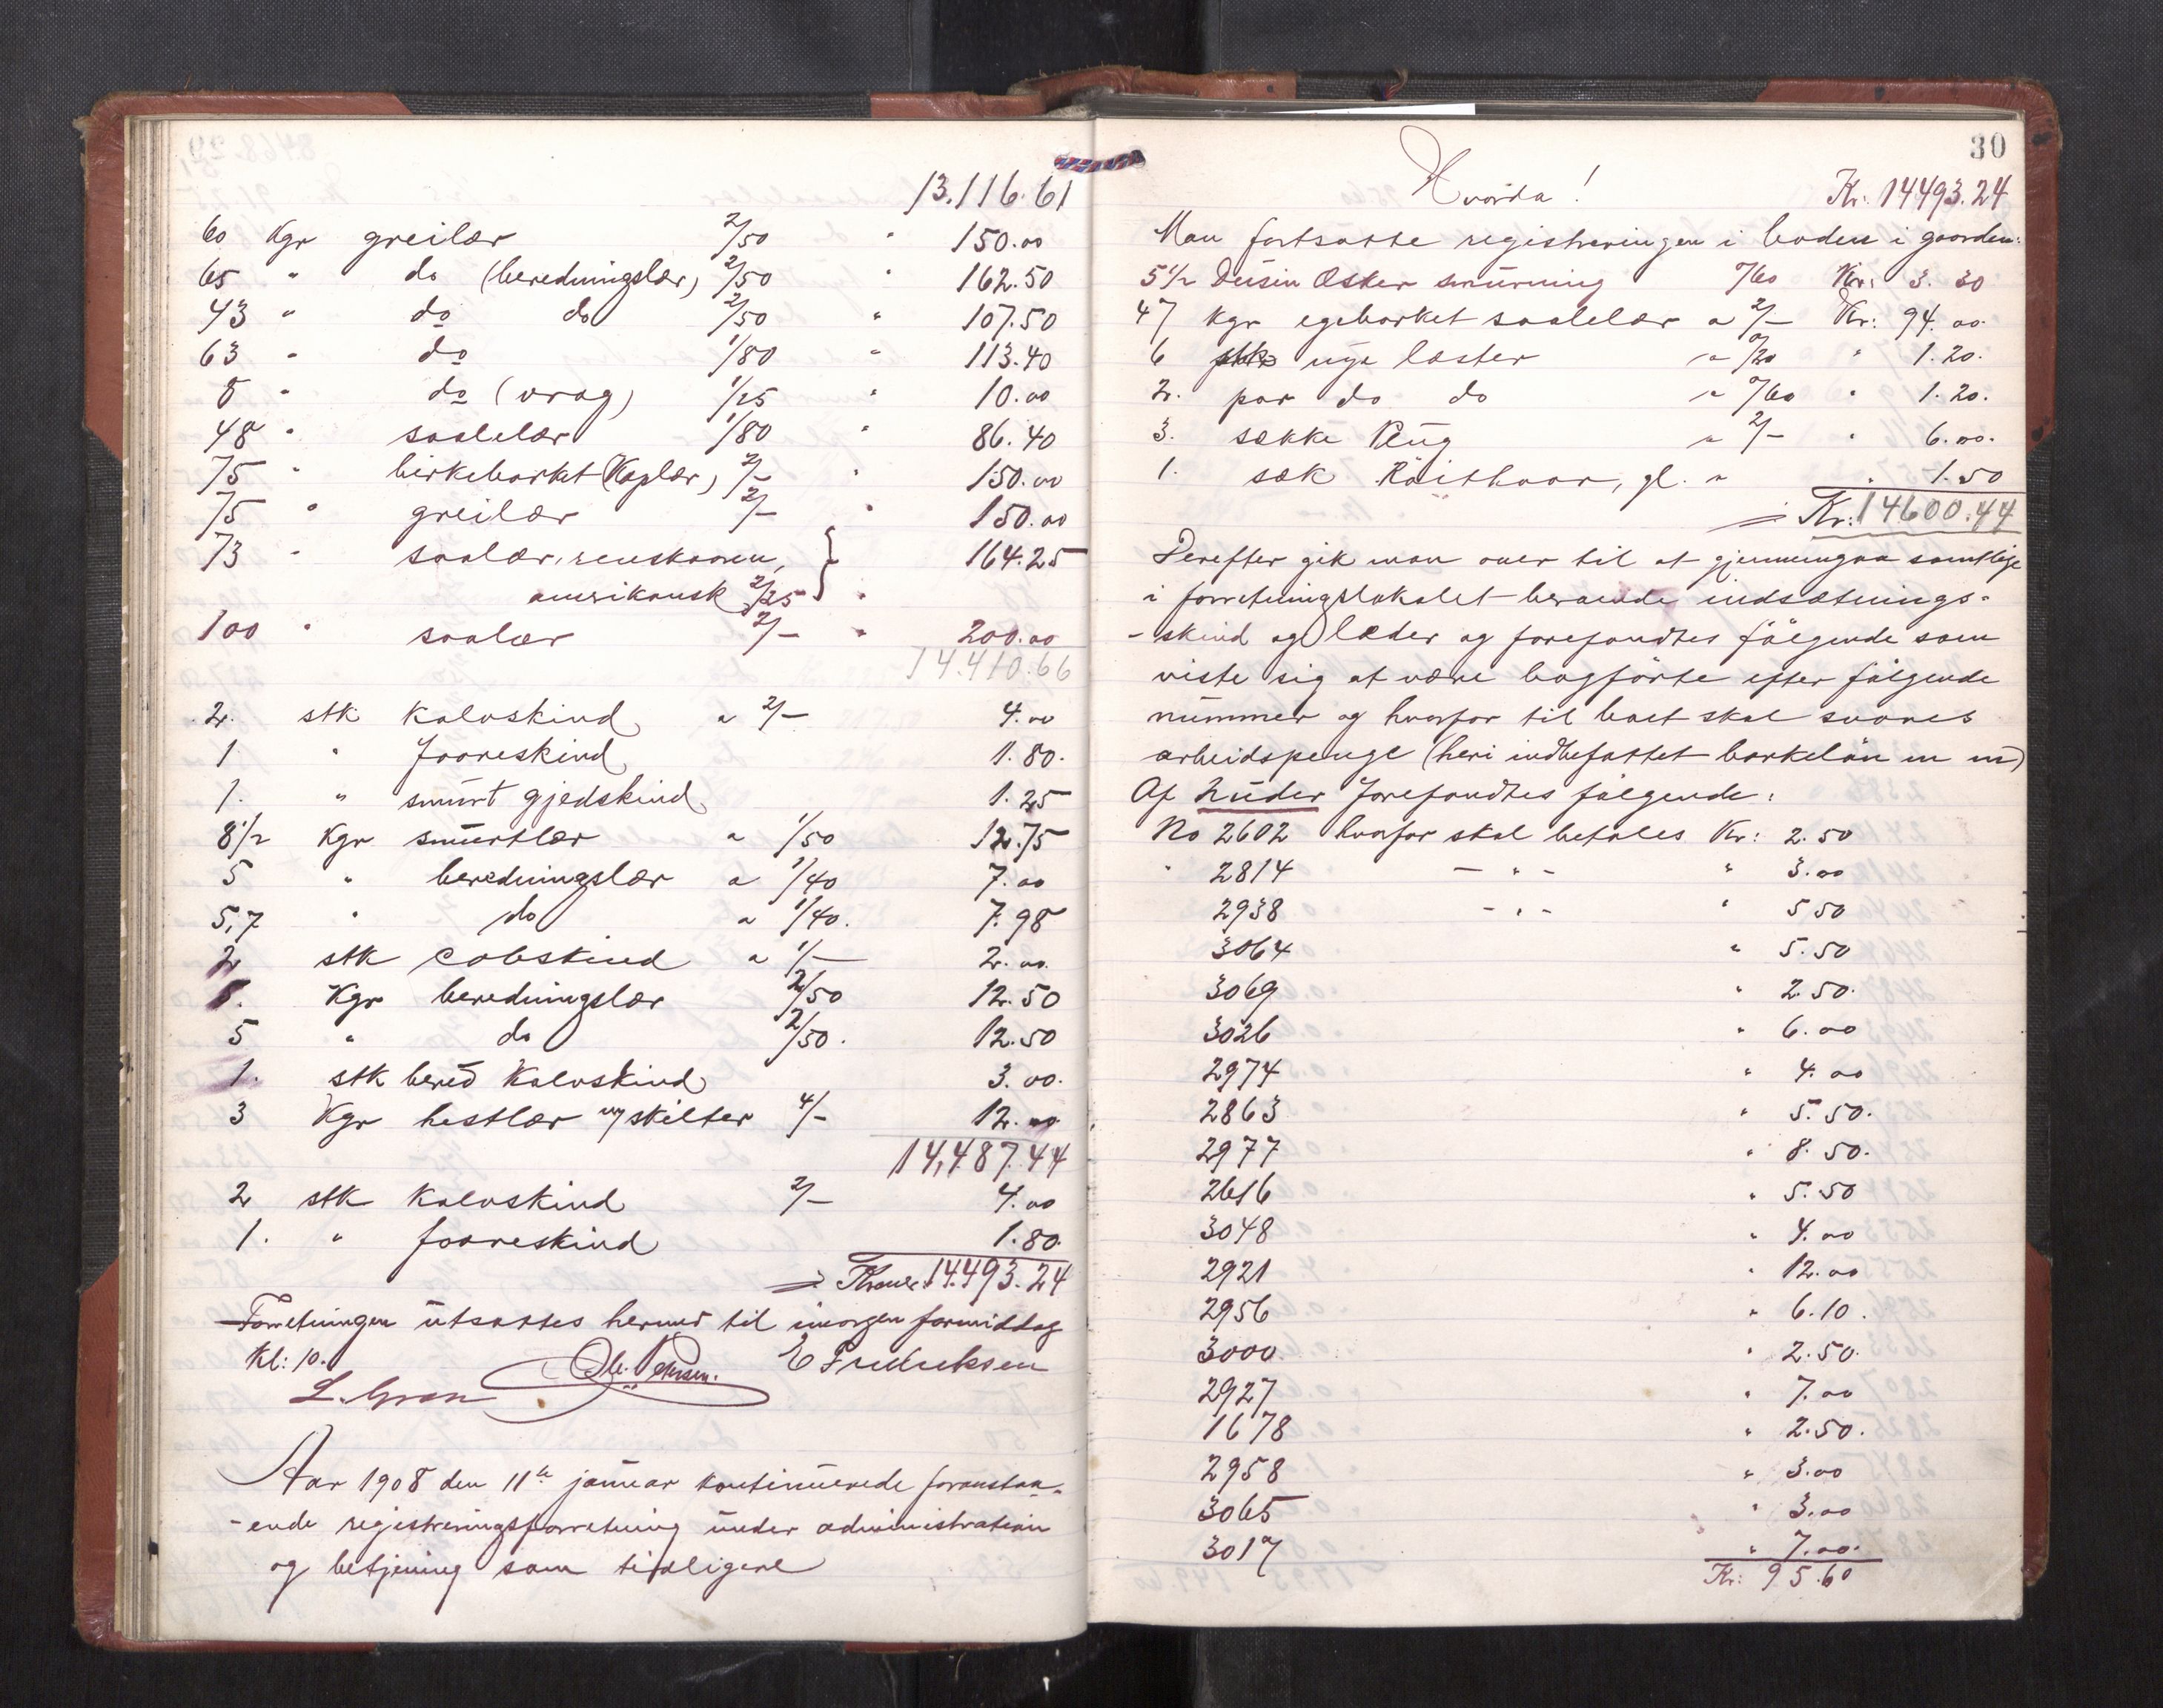 13.116.61
60 Kgr greilær 2/50 " 150.00
65 " do (beredningslær) 2/50 " 162.50
43 " do do 2/50 " 107.50
63 " do 1/80 " 113.40
8 " do (vrag) 1/25 " 10.00
48 " saalelær 1/80 " 86.40
75 " birkebarket (Kaplær) 2/- " 150.00
75 " greilær 2/- " 150.00
73 " saalær, renskaaren, } 164.25
amerikansk 2/25 "
100 " saalær 2/- " 200.00
14.410.66
2. stk kalvskind a 2/- 4.00
1 " faareskind 1.80.
1. " smurt gjedskind 1.25
8 1/2 Kgr smurtlær a 1/50 12.75
5 " beredningslær a 1/40 7.00
5,7 " do a 1/40. 7.98
2 stk cobskind a 1/- 2.00.
5. Kgr beredningslær 2/50 12.50
5 " do 2/50. 12.50
1. stk bered kalvskind 3.00.
3 Kgr hestlær og skilter 4/- 12.00
14,487.44
2 stk kalvskind 2/- 4.00
1. " faareskind 1.80.
= Kroner 14.493.24
Forretningen utsattes hermed til imorgen formiddag
Kl: 10.
Ole Pedersen. E Fredriksen
L. Gran
Aar 1908 den 11te januar kontinuerede foranstaa-
-ende registreringsforretning under administration
og betjening som tidligere
30
Hvorda!
Kr. 14493.24
Man fortsatte registreringen i boden i gaarden:
5 1/2 Dusin Æsker smurning "/60 Kr: 3.30
47 kgr egebarket saalelær a 2/- Kr: 94.00.
6 stk nye læster a "/20 " 1.20.
2. par do do a "/60 " 1.20.
3. sække Plüg a 2/- " 6.00.
1. sæk Räithaar, gl. a " 1.50
= Kr: 14600.44
Derefter gik man over til at gjennemgaa samtlige
i forretningslokalet beroende indsætnings-
-skind og læder og forefandtes følgende som
viste sig at være bogførte efter følgende
nummer og hvorfor til boet skal svares
arbeidspenge (heri indbefattet barkeløn m m)
Af huder forefandtes følgende:
No 2602 hvorfor skal betales Kr: 2.50
" 2814 - " - " 3.00
2938 - " - " 5 50
3064 " 5.50
3069 " 2.50.
3026 " 6.00
2974 " 4.00
2863 " 5.50.
2977 " 8.50.
2616 " 5.50
3048 " 4.00
2921 " 12.00
2956 " 6.10.
3000 " 2.50.
2927 " 7.00
1678 " 2.50.
2958 " 3.00
3065 " 3.00
3017 " 7.00.
Kr: 95.60